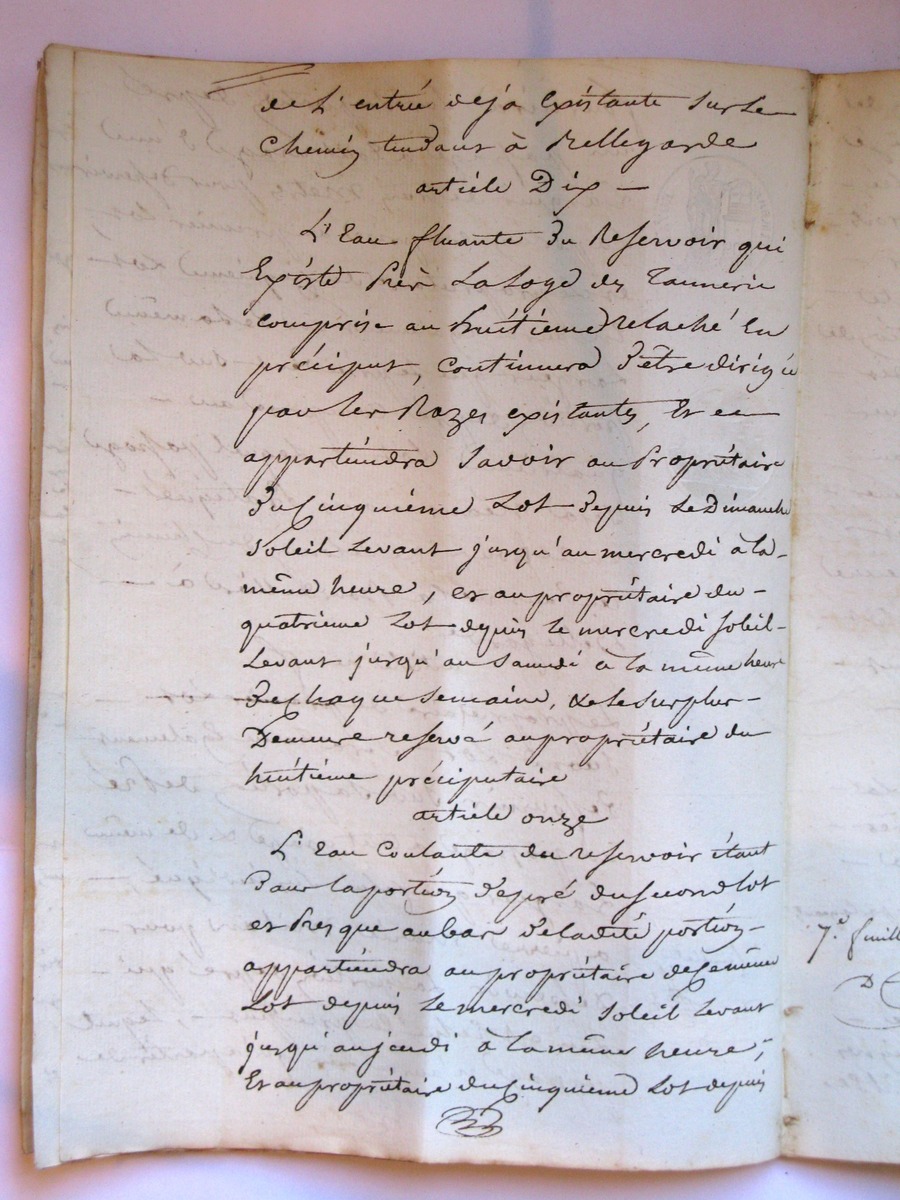 de L'entrée deja Existante Sur Le
Chemin tendant à Bellegarde
article Dix —
L'Eau fluante du Reservoir qui
Existe Près La Loge de Tannerie
comprise au huitieme relaché En
préciput, continuera d'être dirigée
par les Razes existantes, Et en
appartiéndra Savoir au Propriétaire
du Cinquiéme Lot depuis Le Dimanche
Soleil Levant jusqu'au mercredi à la
même heure, et au propriétaire du
quatrieme Lot depuis le mercredi soleil
Levant jusqu'au samedi à la même heure
de chaque Semaine, & le surplus
Demeure reservé au propriétaire du
huitième préciputaire
article onze
L'Eau Coulante du reservoir étant
dans la portion de pré du second lot
et Presque au bas de ladite portion
appartiéndra au propriétaire de ce même
Lot depuis Le mercredi Soleil Levant
jusqu'au jeudi à la même heure,
Et au propriétaire du Cinquieme Lot depuis
7.e feuill